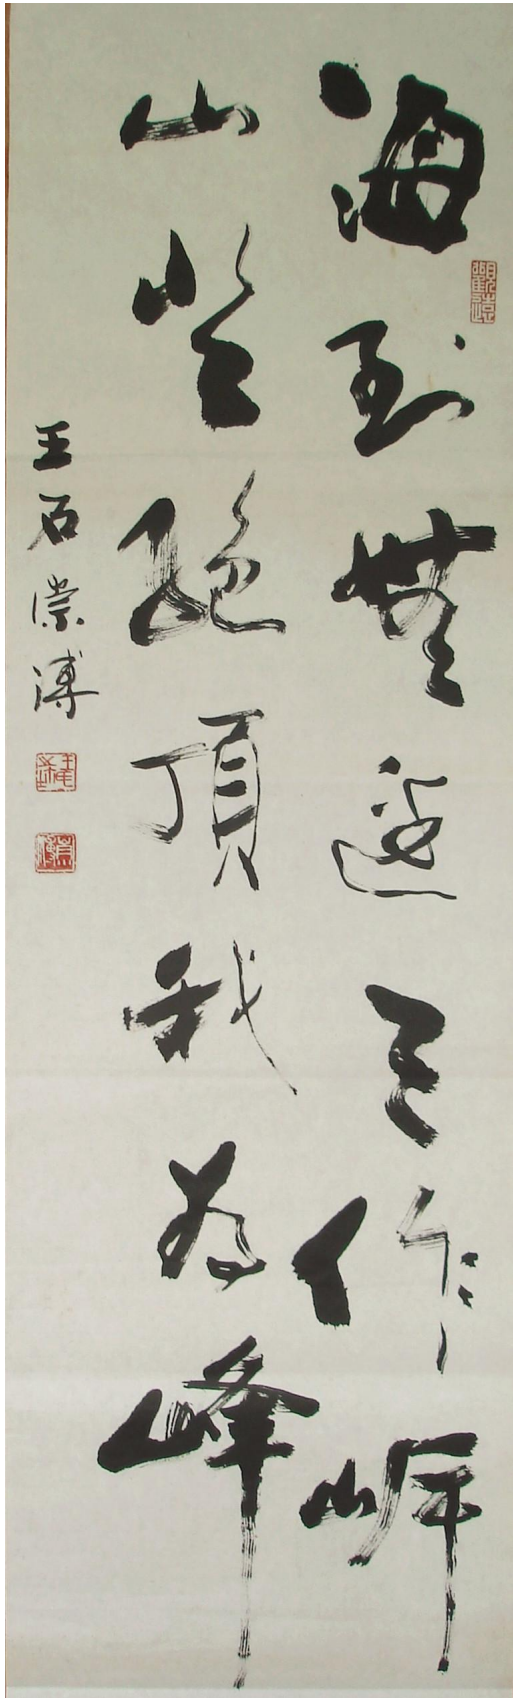 海到無邊天作岸
山登絕頂我為峰
王石崇溥
觀遠